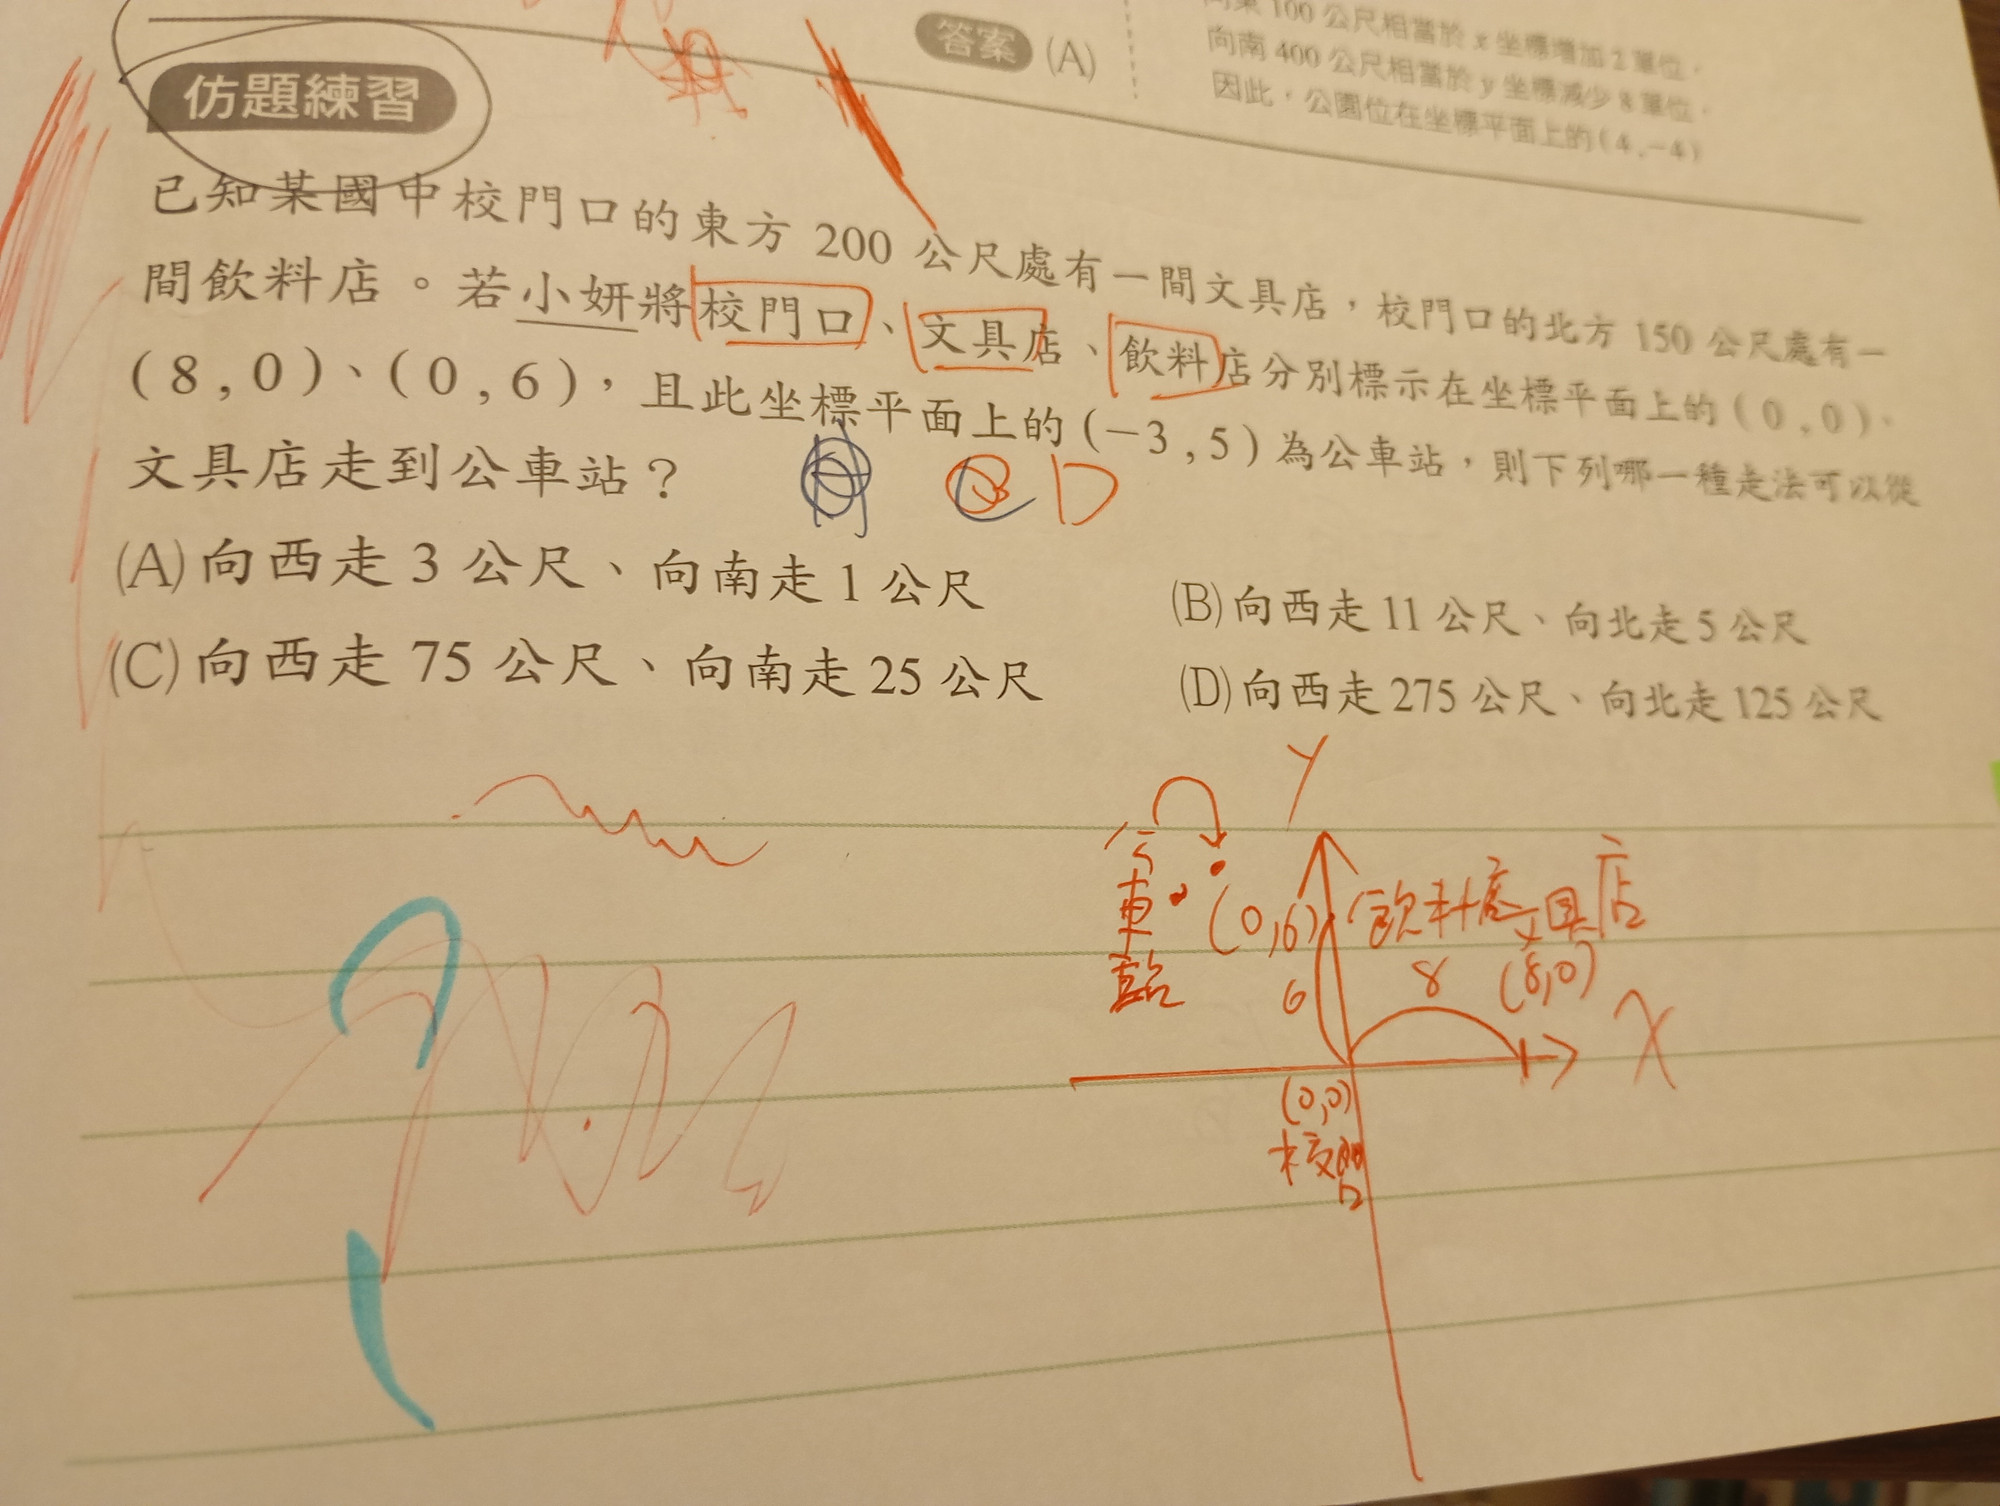 向東100公尺相當於x坐標增加2單位，
答案 (A)
向南400公尺相當於y坐標減少8單位，
因此，公園位在坐標平面上的(4,-4)
仿題練習
已知某國中校門口的東方 200 公尺處有一間文具店，校門口的北方 150 公尺處有一
間飲料店。若小妍將校門口、文具店、飲料店分別標示在坐標平面上的(0,0)、
(8,0)、(0,6)，且此坐標平面上的(−3,5)為公車站，則下列哪一種走法可以從
文具店走到公車站？
D
(A)向西走 3 公尺、向南走 1 公尺
(B)向西走 11 公尺、向北走 5 公尺
(C)向西走 75 公尺、向南走 25 公尺
(D)向西走 275 公尺、向北走 125 公尺
y
公車站
(0,6)
飲料店
文具店
(8,0)
6
8
x
(0,0)
校門口